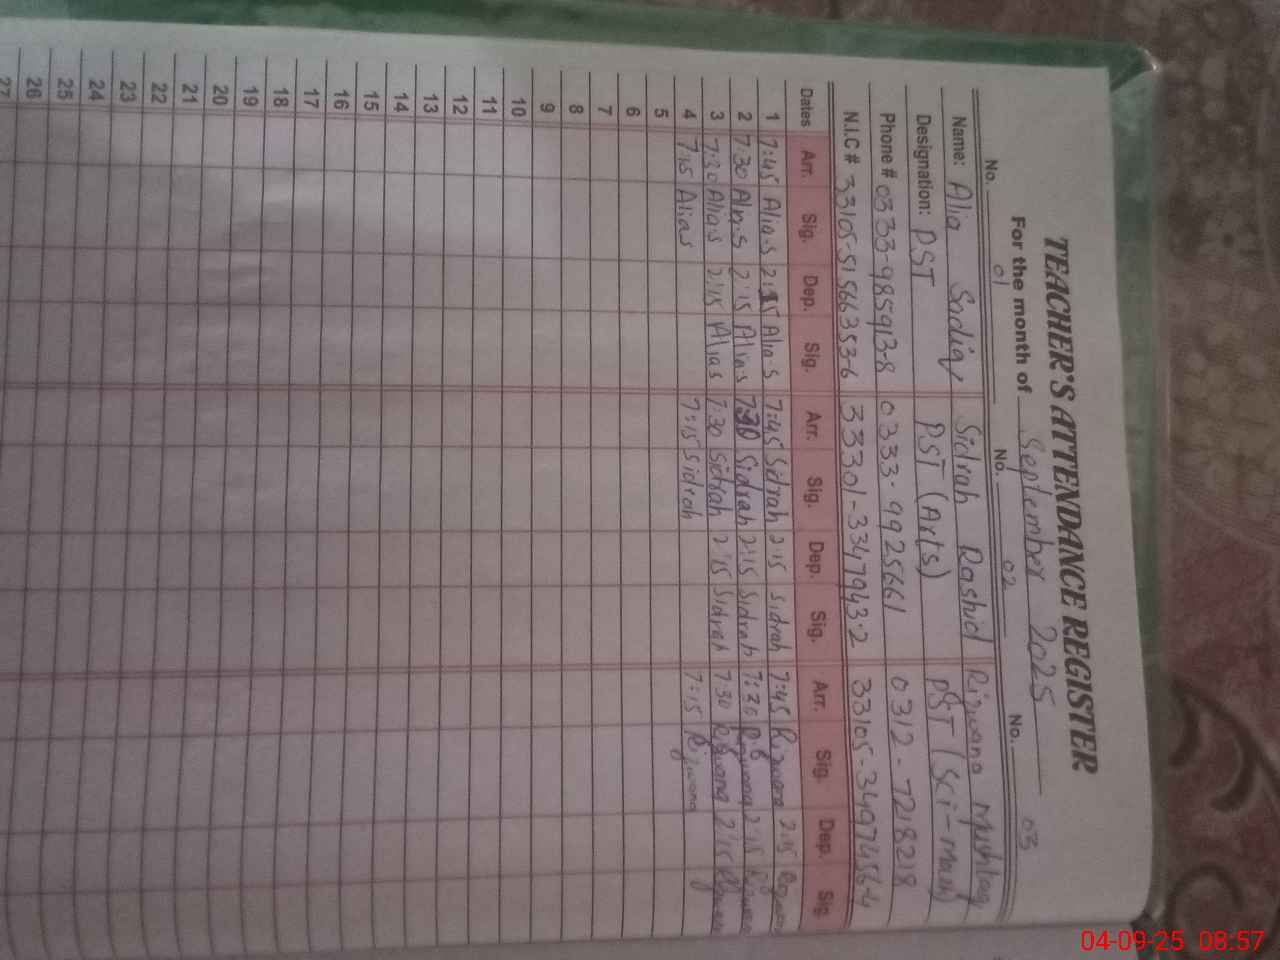 TEACHER'S ATTENDANCE REGISTER
For the month of September 2025
No. 01 No. 02 No. 03
Name: Alia Sadiq Sidrah Rashid Rizwana Mushtaq
Designation: PST PST (Arts) PST (Sci-math)
Phone # 0333-985913-8 0333-9925661 0312-7218218
N.I.C # 33105-51566353-6 33301-3347943-2 33105-3497456-4
Dates Arr. Sig. Dep. Sig. Arr. Sig. Dep. Sig. Arr. Sig. Dep. Sig.
1 7:45 Alia-s 2:15 Alia-s 7:45 Sidrah 2:15 Sidrah 7:45 Rizwana 2:15
2 7:30 Alia-s 2:15 Alia-s 7:30 Sidrah 2:15 Sidrah 7:30 Rizwana 2:15 Rizwana
3 7:30 Alia-s 2:15 Alias 7:30 Sidrah 2:15 Sidrah 7:30 Rizwana 2:15 Rizwana
4 7:15 Alias 7:15 Sidrah 7:15 Rizwana
5
6
7
8
9
10
11
12
13
14
15
16
17
18
19
20
21
22
23
24
25
26
27
04-09-25 08:57